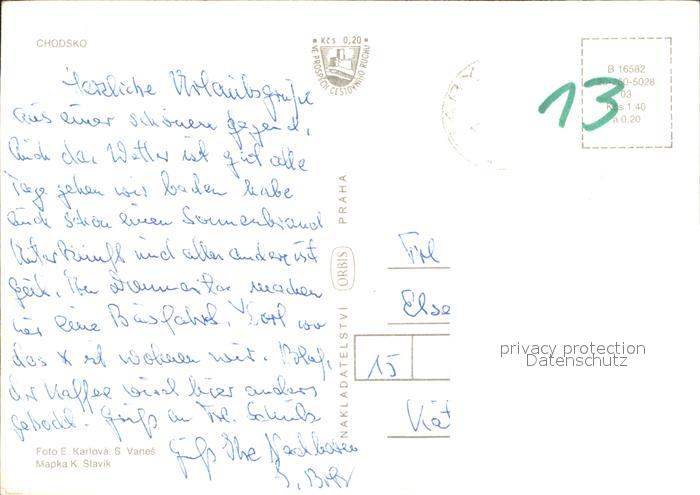 CHODSKO
Kčs 0,20
VE PROSPĚCH CESTOVNÍHO RUCHU
B 16582
03
Kčs 1,40
0,20
13
Herzliche Urlaubsgrüße
aus einer schönen gegend,
Auch das Wetter ist gut alle
Tage gehen wir baden habe
auch schon einen Sonnenbrand
Unterkunft und alles andere ist
gut. Am Donnerstag machen
wir eine Busfahrt. Dort wo
das X ist wohnen wir.
der Kaffee wird hier anders
gekocht. Gruß an Frl. Schulz
Gruß Ihre Nachbarn
NAKLADATELSTVÍ ORBIS PRAHA
Frl
Else
15
privacy protection
Datenschutz
Foto E. Karlová, S. Vaneš
Mapka K. Slavík